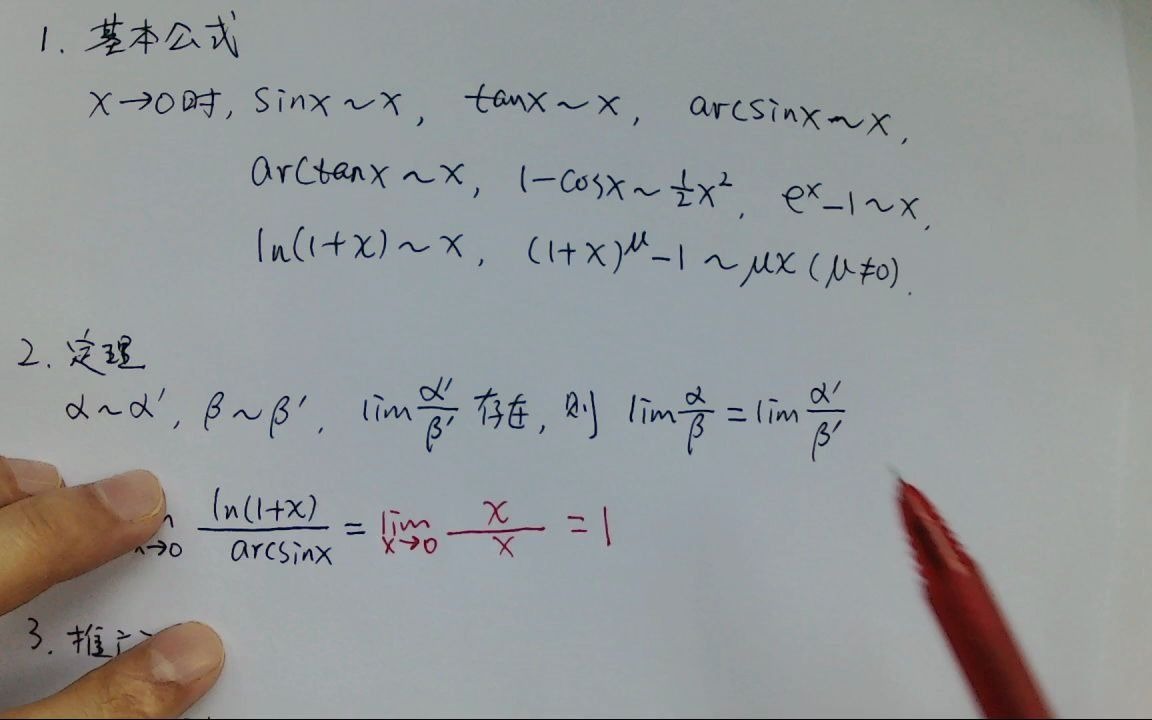 1. 基本公式
x→0时, sinx~x, tanx~x, arcsinx~x,
arctanx~x, 1-cosx~\frac{1}{2}x², eˣ-1~x,
ln(1+x)~x, (1+x)^μ-1~μx(μ≠0).
2. 定理
α~α′, β~β′, lim\frac{α′}{β′}存在, 则 lim\frac{α}{β}=lim\frac{α′}{β′}
→0 \frac{ln(1+x)}{arcsinx} = lim_{x→0} \frac{x}{x} = 1
3. 推广